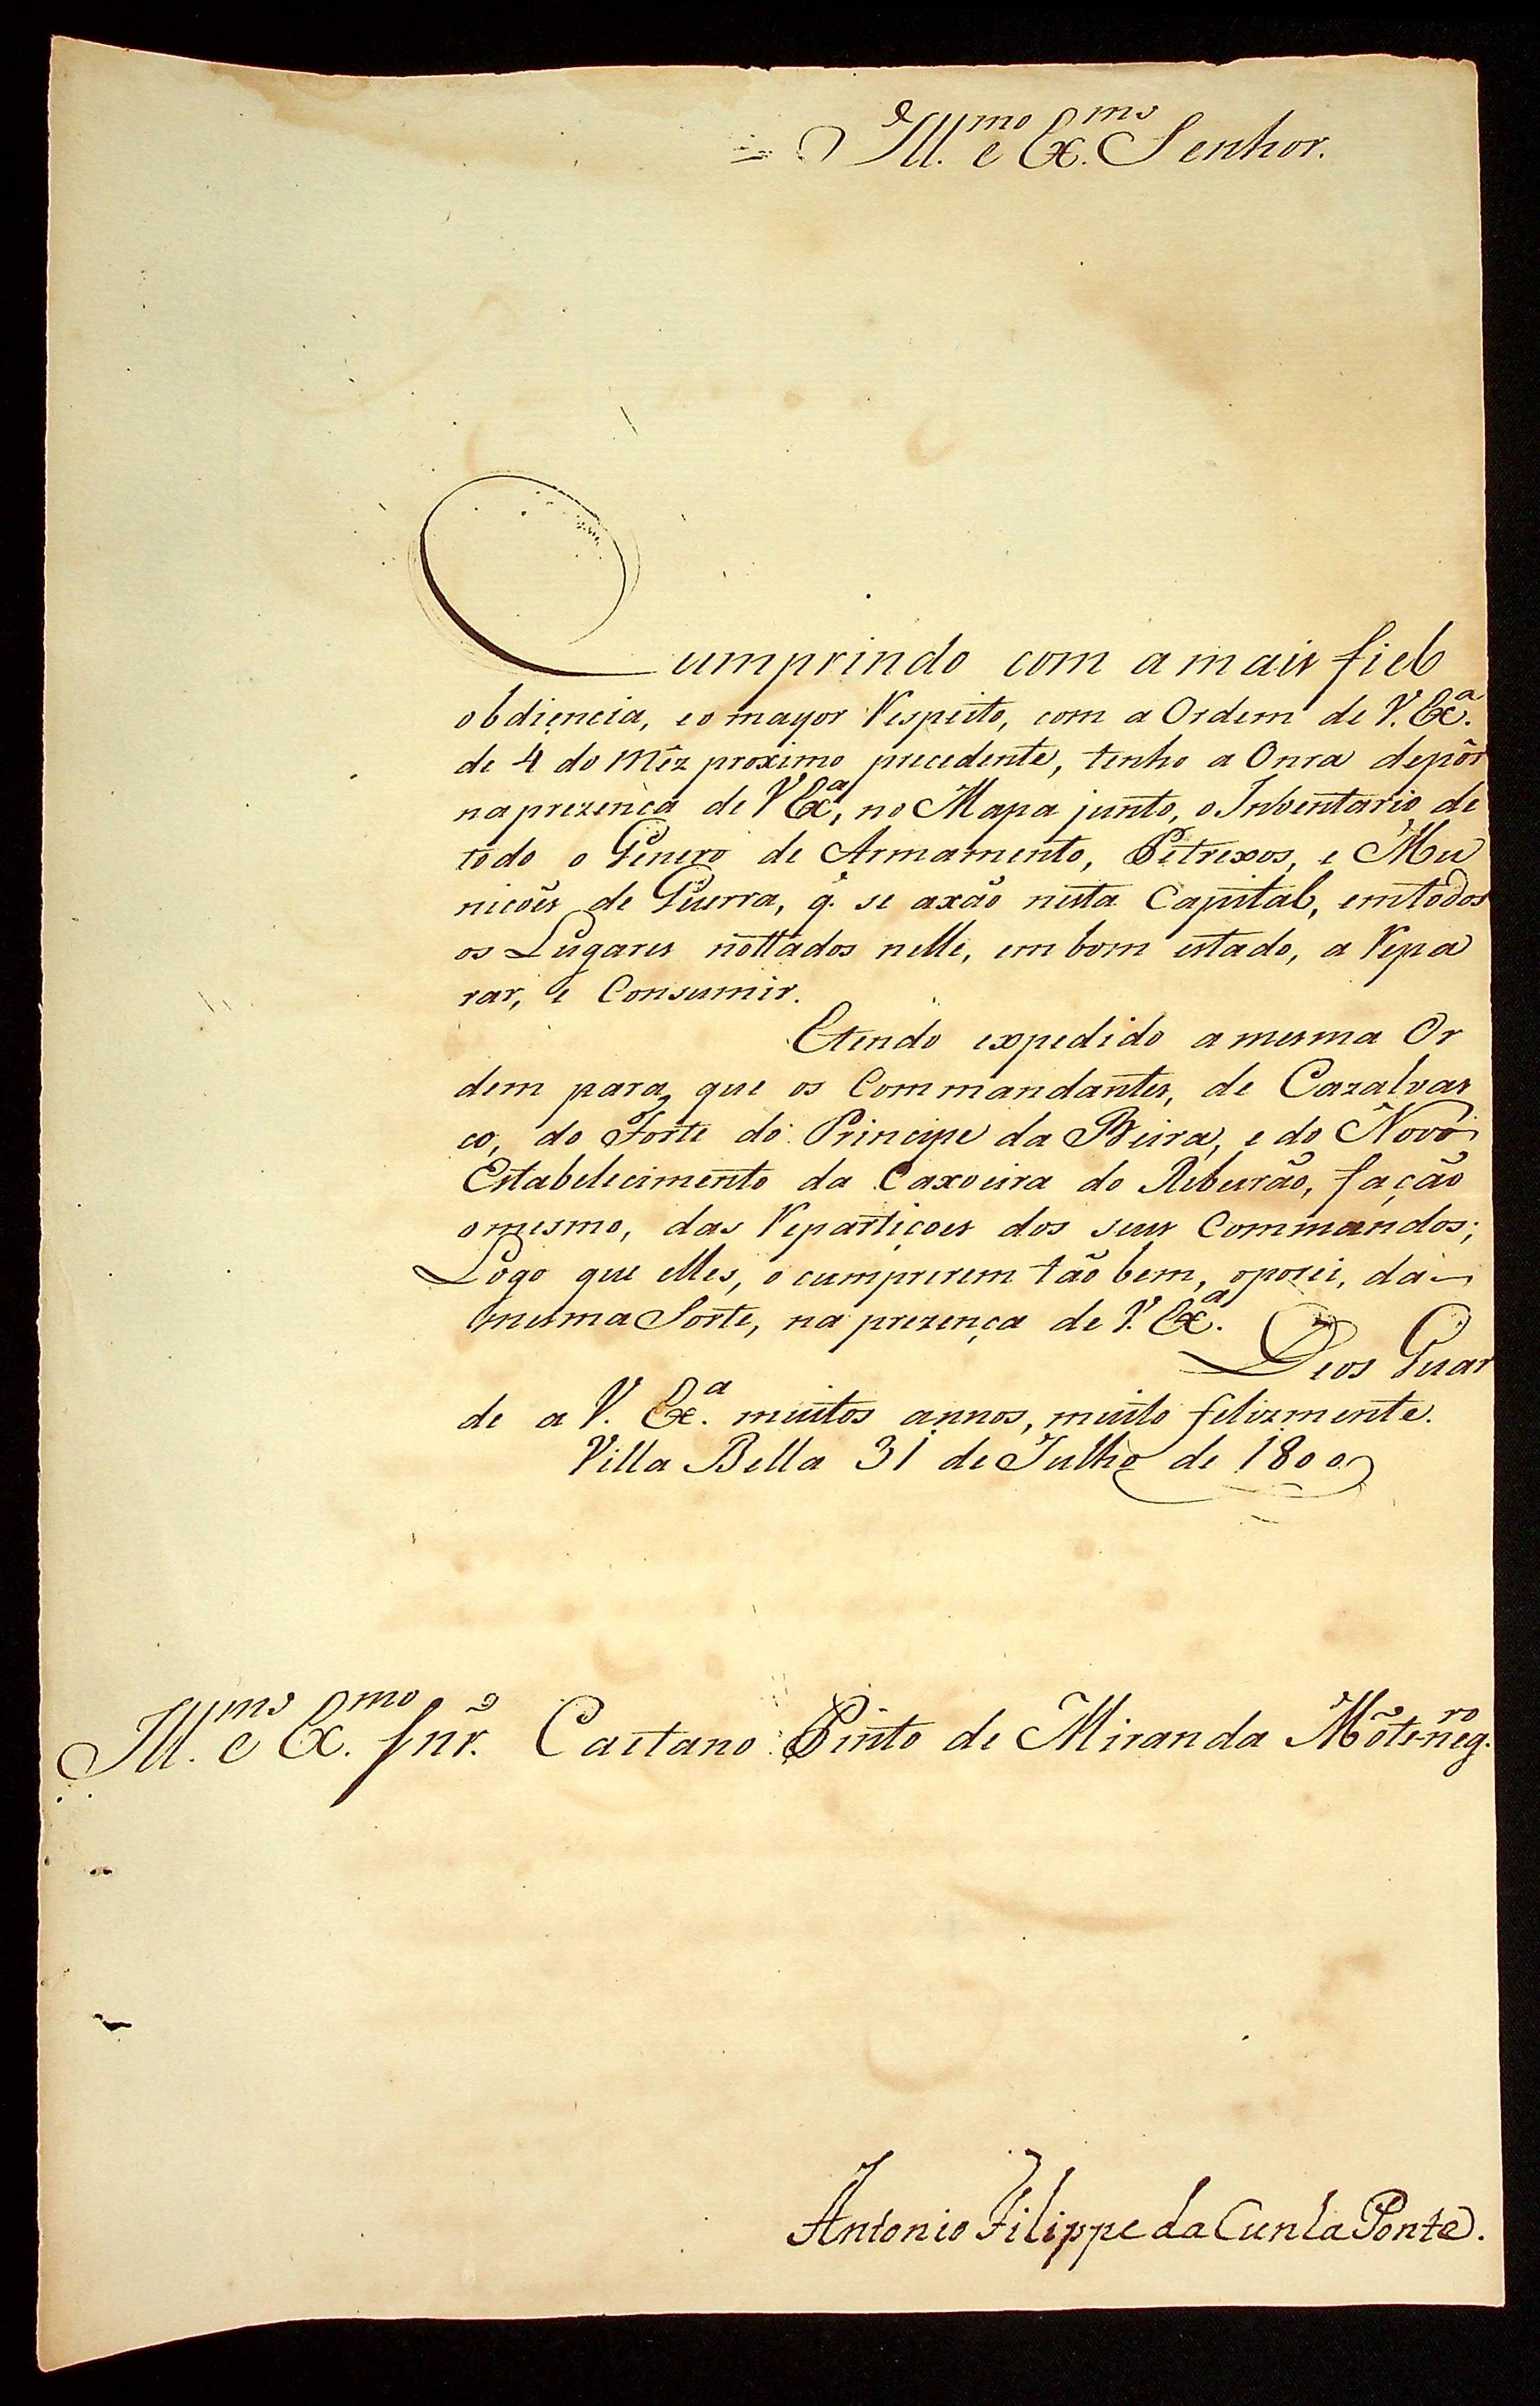 Ill.mo e Ex.mo Senhor.
Cumprindo com a mais fiel
obdiencia, e o mayor Respeito, com a Ordem de V. Ex.a
de 4 do Mêz proximo precedente, tenho a Onra depôr
naprezença de V Ex.a, no Mapa junto, o Inventario de
todo o Genero de Armamento, Petrexos, e Mu
nicões de Guerra, q. se axão nesta Capital, emtodos
os Lugares nottados nelle, em bom estado, a Repa
rar, e Consumir.
E tendo expedido a mesma Or
dem para que os Commandantes, de Cazalvas
co, do Forte do Principe da Beira, e do Novo
Estabelecimento da Caxoeira do Ribeirão, fação
omesmo, das Repartiçoes dos seus Commandos;
Logo que elles, o cumprirem tão bem, oporei, da
mesma Sorte, na prezença de V. Ex.a Deos Guar
de a V. Ex.a muitos annos, muito felizmente.
Villa Bella 31 de Julho de 1800
Ill.mo e Ex.mo Snr. Caetano Pinto de Miranda Mõteneg.ro
Antonio Filippe da Cunha Ponte.